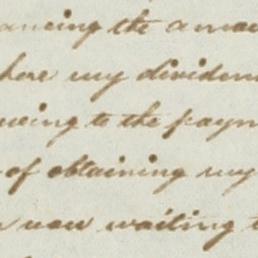 ancing the amou
here my dividen
owing to the paym
of obtaining my
now waiting t